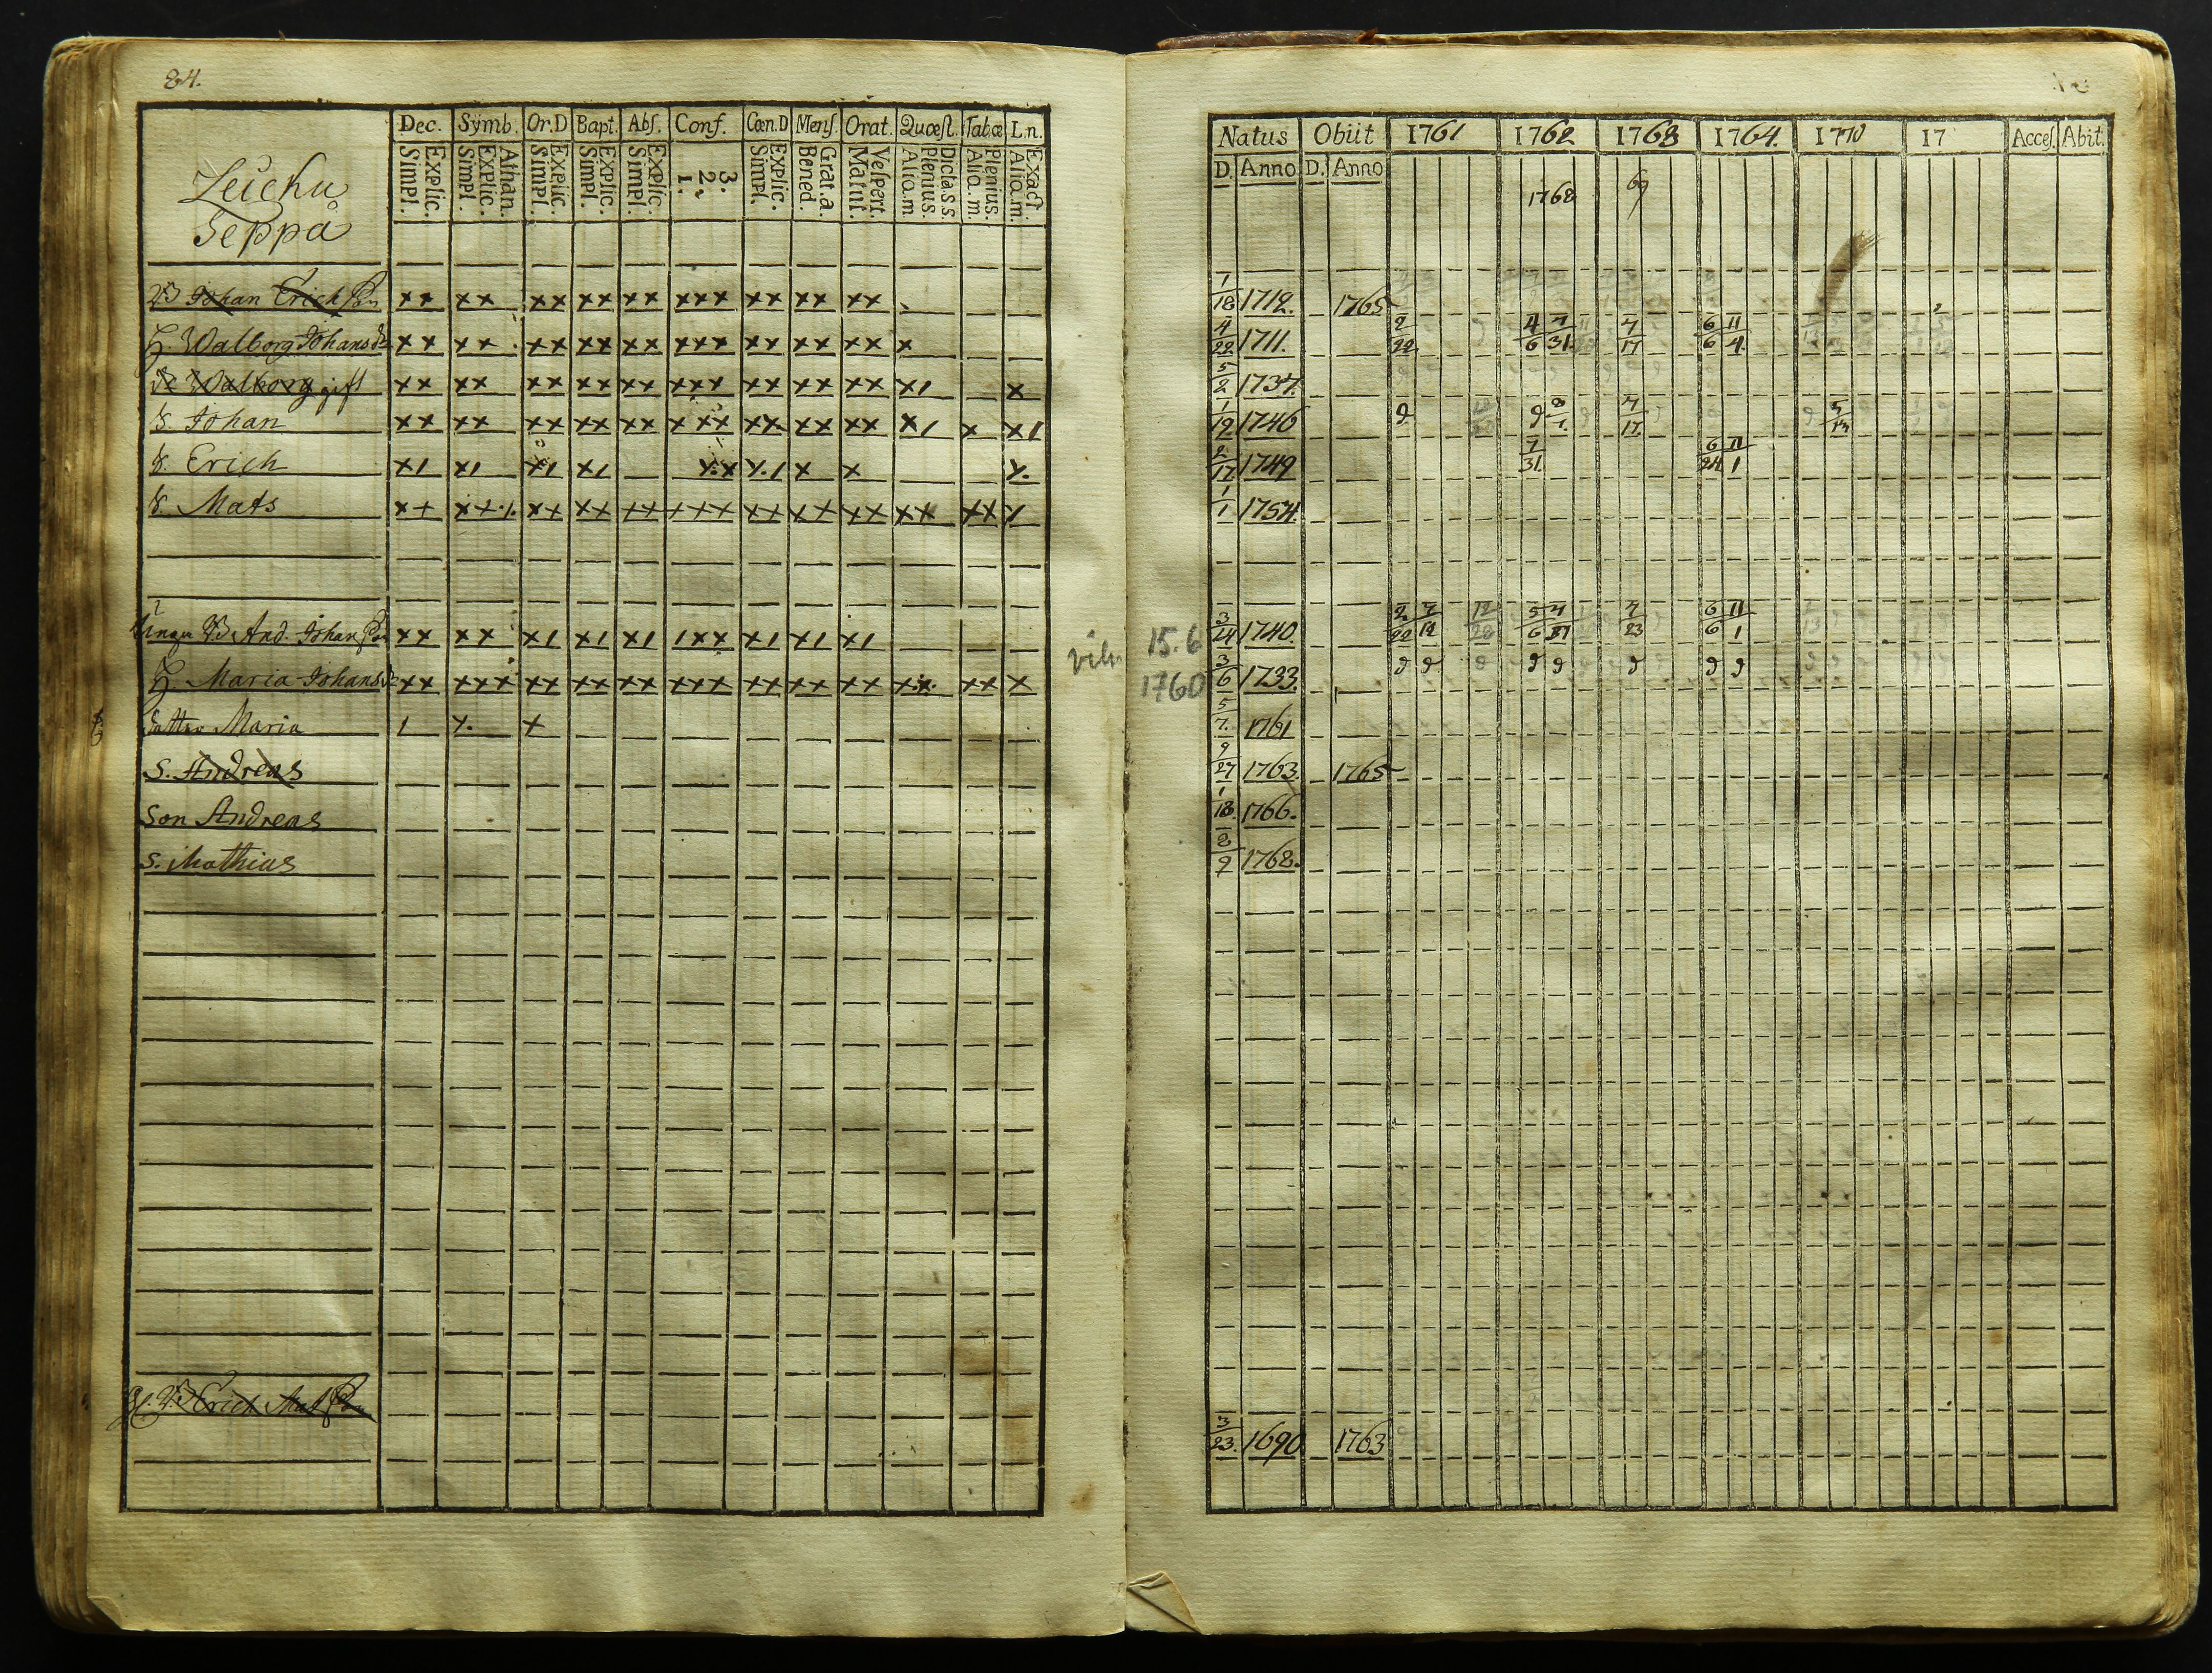 84.
Dec. Symb. Or.D Bapt. Abſ. Conf. Cœn.D Menſ. Orat. Quæſt. Tab.œ L.n.
Explic. Simpl. Athan. Explic. Simpl. Explic. Simpl. Explic. Simpl. Explic. Simpl. 3. 2. 1. Explic. Simpl. Grat.a. Bened. Veſpert. Matut. Dicta.s.s. Plenius. Alio.m Plenius. Alia.m. Exact. Alia.m.
Leicku
Seppä
Johan Erichſon xx xx xx xx xx xxx xx xx xx
H. Walborg Johansdr xx xx xx xx xx xxx xx xx xx x
dr Walborg gift xx xx xx xx xx xxx xx xx xx x1 x
S. Johan xx xx xx xx xx xxx xx xx xx x1 x x1
S. Erich x1 x1 x1 x1 xx x1 x x x
S. Mats xx xx1 xx xx xx xxx xx xx xx xx xx x
And. Johanſon xx xx x1 x1 x1 1xx x1 x1 x1
H. Maria Johansdr xx xxx xx xx xx xxx xx xx xx xx xx x
dotter Maria 1 x x
S. Andreas
Son Andreas
S. Mathias
Erich Matſon
vih.
15.6
1760
Natus Obiit 1761 1762 1763 1764. 1770 17 Acceſ. Abit.
D. Anno D. Anno
1768 69
1/18 1712. 1765
4/22 1711. 2/22 4/6 7/31. 4/17 6/6 11/4
5/2 1737.
1/12 1746 4/17 5/13
2/17 1749 7/31. 6/24 11/1
1/1 1754.
3/24 1740. 2/22 7/12 5/6 4/27 4/23 6/6 11/1
3/6 1733.
5/7. 1761
9/27 1763. 1765
1/18. 1766.
2/9 1768.
3/23. 1690 1763